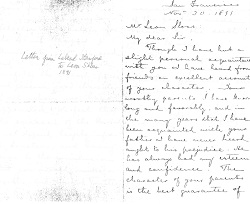 San Francisco
Nov. 20. 1891
Mr Leon Sloss.
My dear Sir.
Though I have but a
slight personal acquaintance
with you I have heard from
friends an excellent account
of your character. Your
worthy parents I have known
long and favorably and in
the many years that I have
been acquainted with your
father I have never heard
ought to his prejudice. He
has always had my esteem
and confidence. The
character of your parents
is the best guarantee of
Letter from Leland Stanford
to Leon Sloss
1891